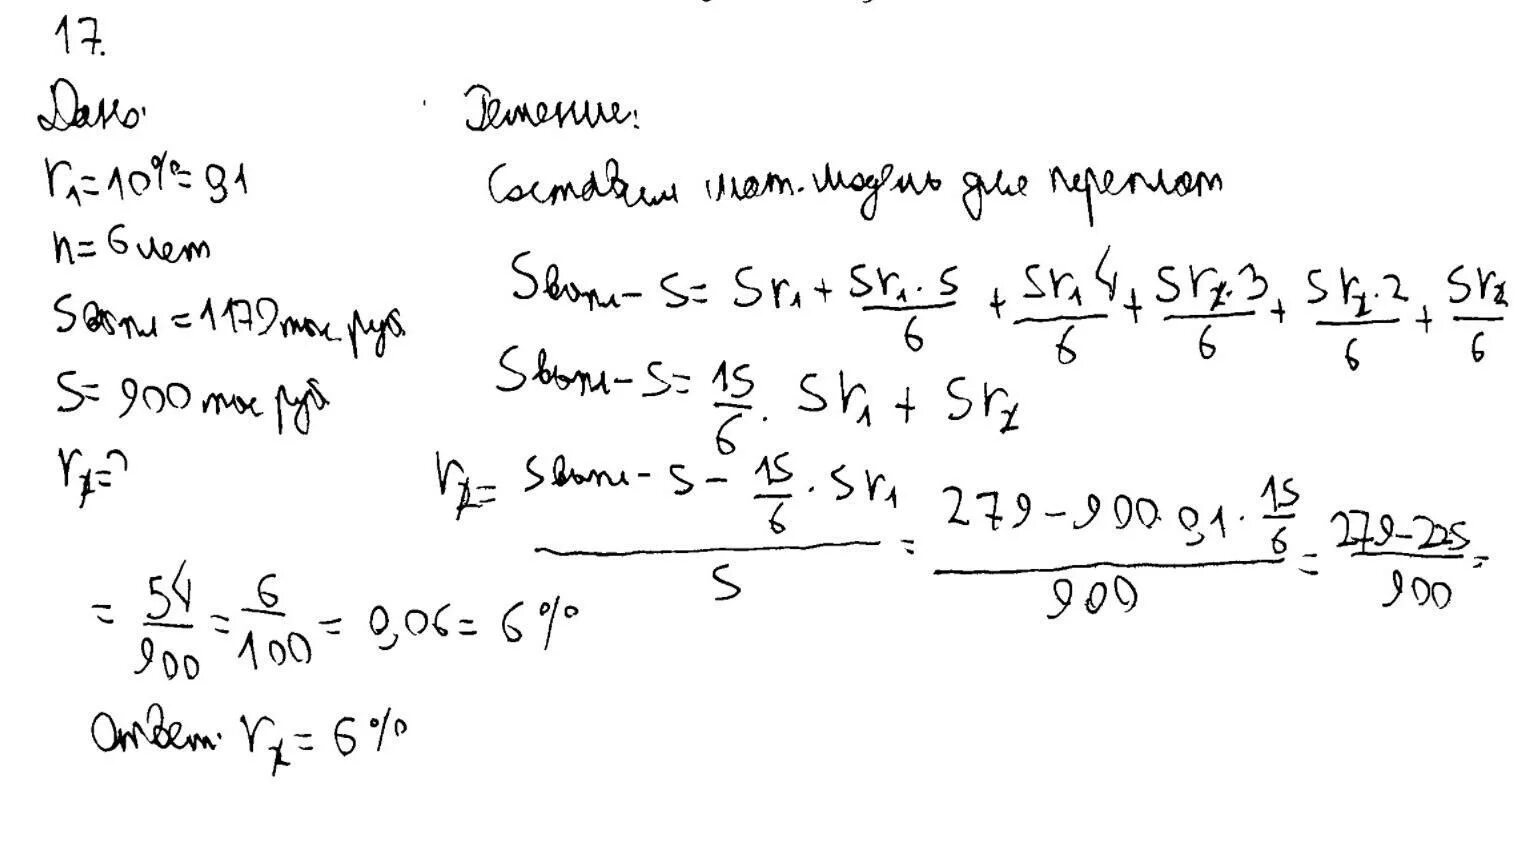 17.
Дано:
r₁=10%=0,1
n=6 лет
Sвыпл=1179 тыс. руб
S=900 тыс руб
rₓ=?
Решение:
Составим мат. модель для переплат
Sвыпл-S=Sr₁+Sr₁·5/6+Sr₁4/6+Srₓ·3/6+Srₓ·2/6+Srₓ/6
Sвыпл-S=15/6·Sr₁+Srₓ
rₓ=(Sвыпл-S-15/6·Sr₁)/S=(279-900·0,1·15/6)/900=(279-225)/900=
=54/900=6/100=0,06=6%
Ответ: rₓ=6%